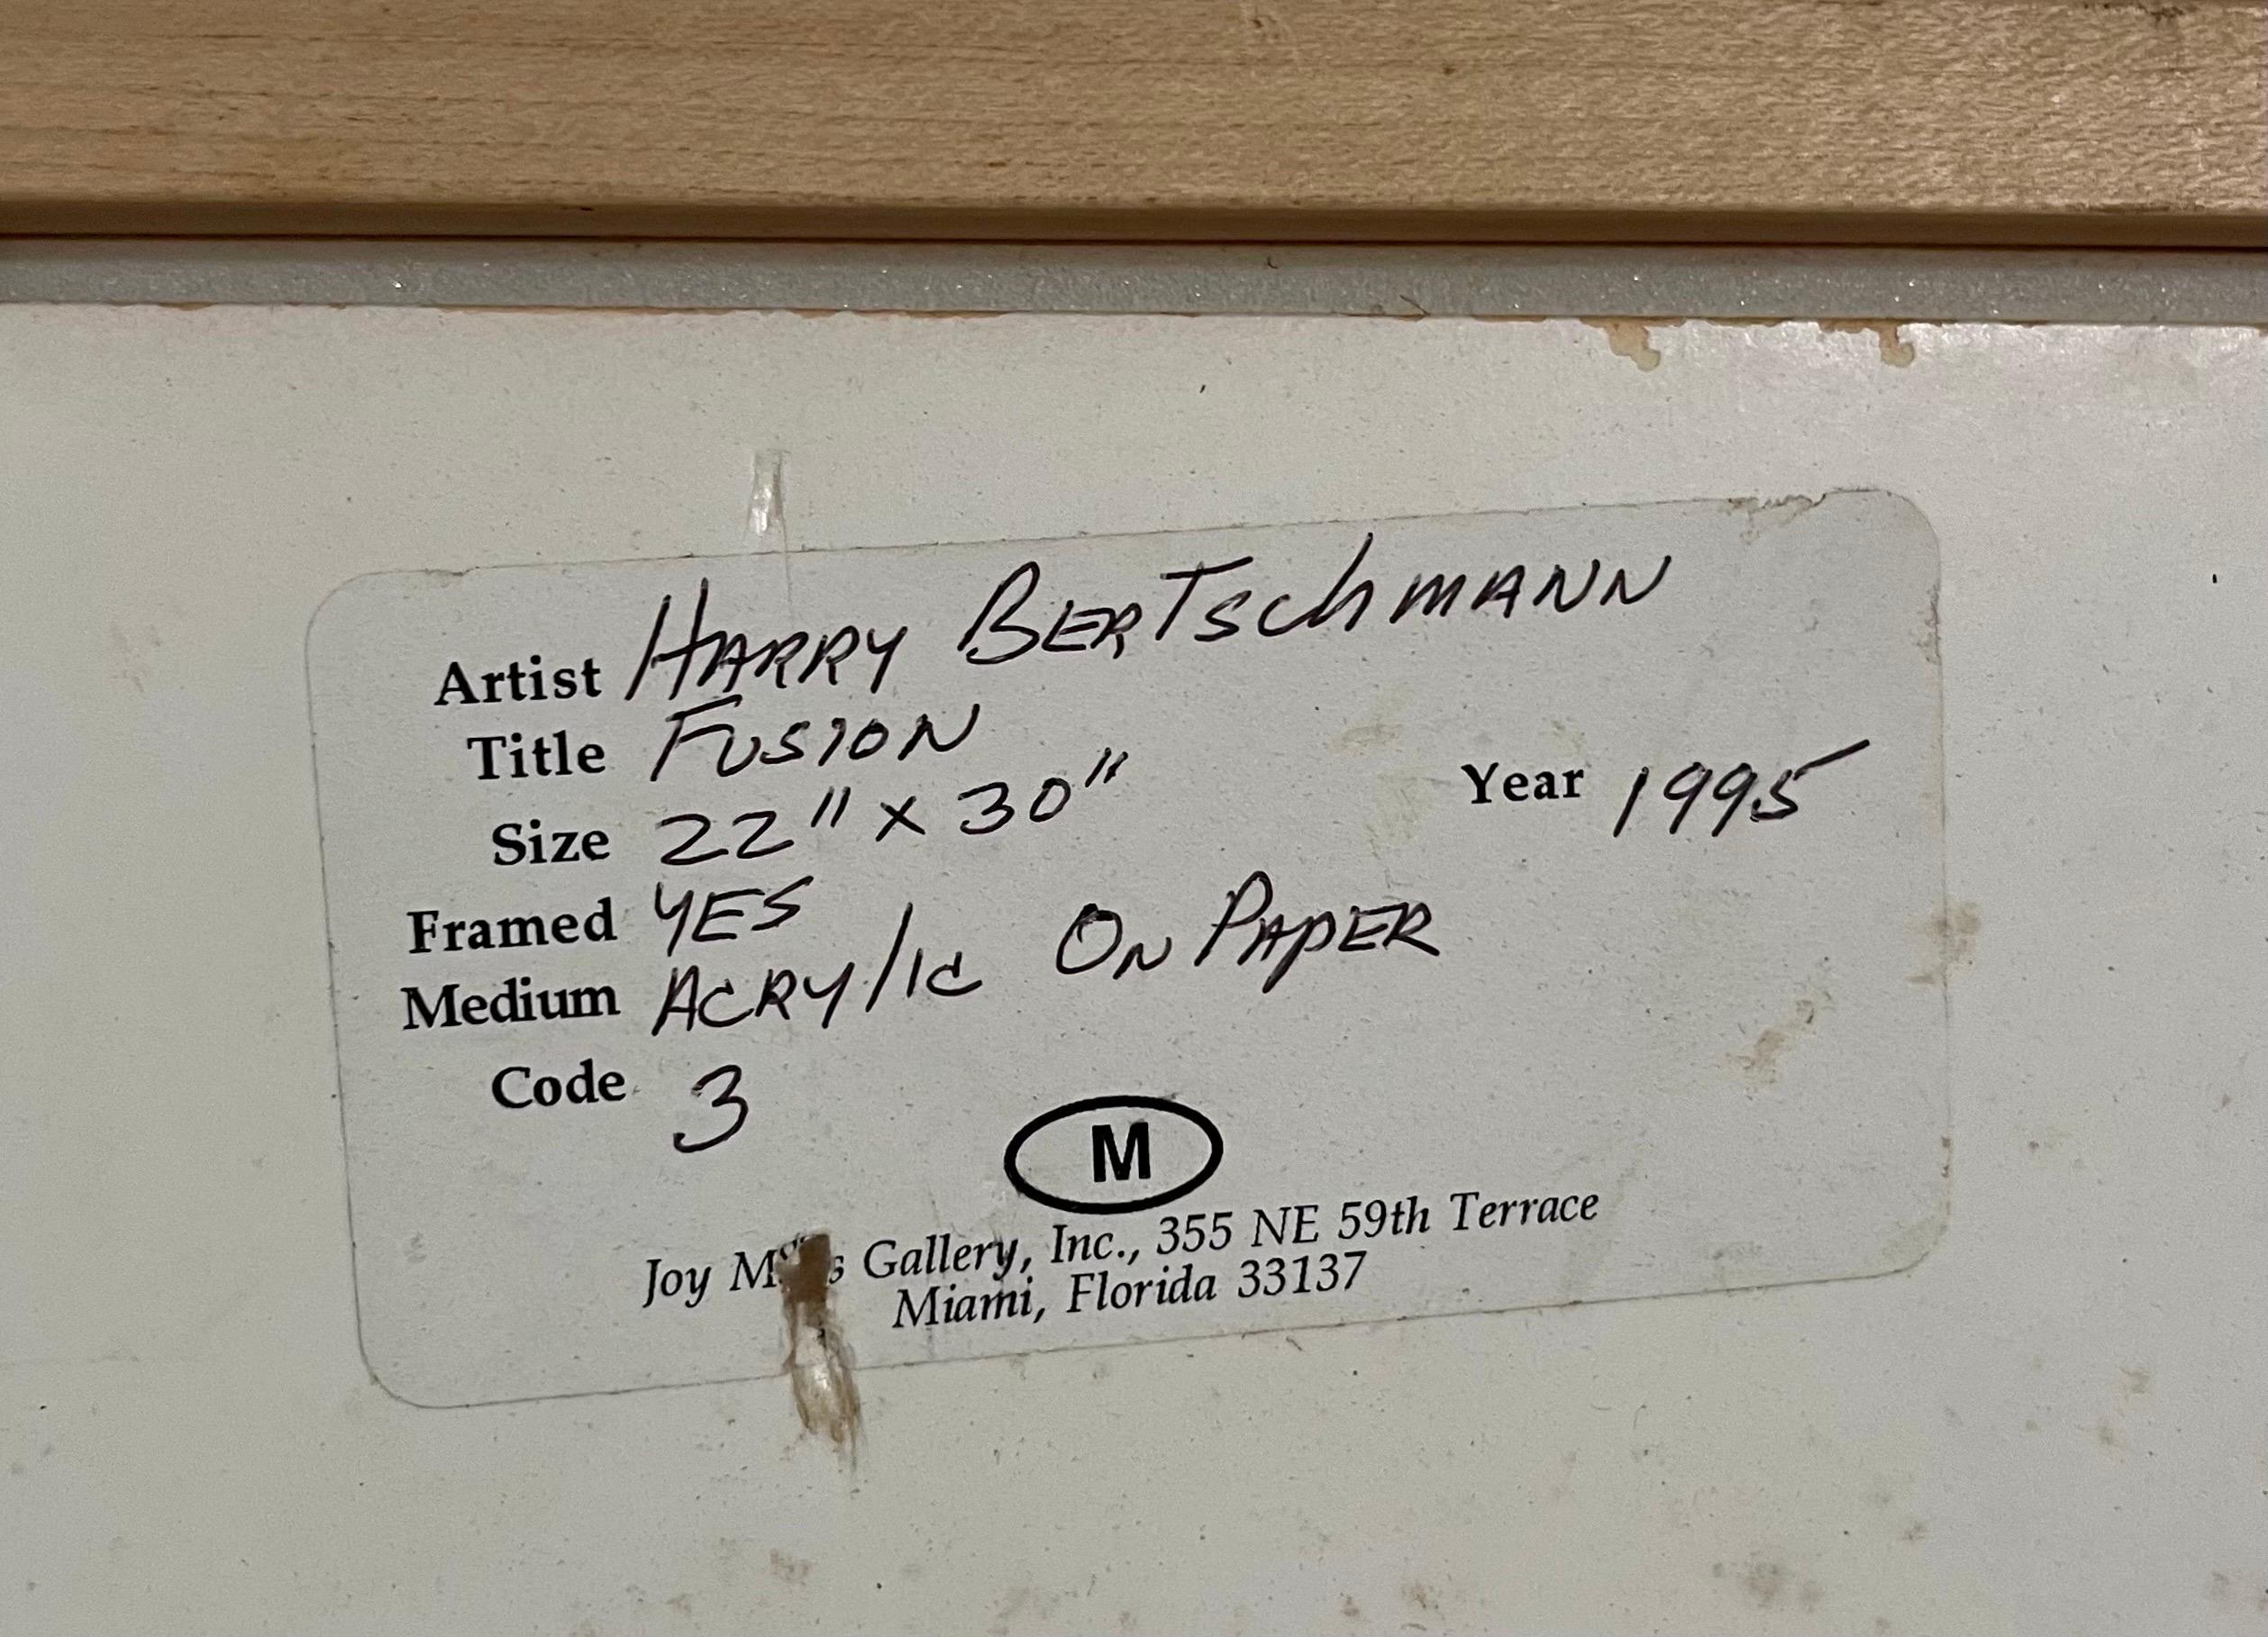 Artist HARRY BERTSCHMANN
Title FUSION
Size 22" x 30" Year 1995
Framed YES
Medium ACRYlIC ON PAPER
Code 3
M
Joy Gallery, Inc., 355 NE 59th Terrace
Miami, Florida 33137